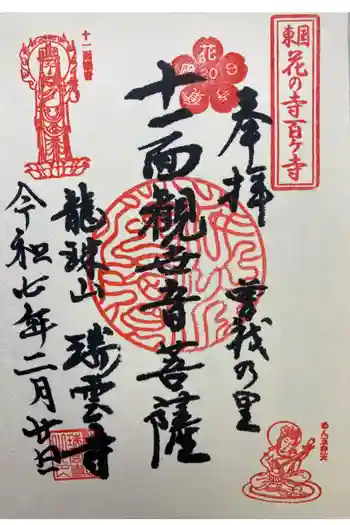 東国花の寺百ヶ寺
奉拝
曽我の里
花
20
十一面観世音菩薩
十一面観音
龍珠山 瑞雲寺
令和七年二月廿日